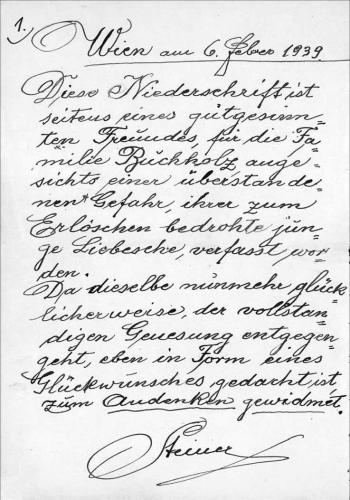 1.)
Wien am 6. Feber 1939.
Diese Niederschrift ist
seitens eines gutgesinn=
ten Freundes, für die Fa=
milie Buchholz ange=
sichts einer überstande=
nen Gefahr, ihrer zum
Erlöschen bedrohte jün=
ge Liebesehe, verfasst wor=
den.
Da dieselbe nunmehr glück=
licherweise, der vollstän=
digen Genesung entgegen=
geht, eben in Form eines
Glückwunsches gedacht ist,
zum Andenken gewidmet.
Steiner